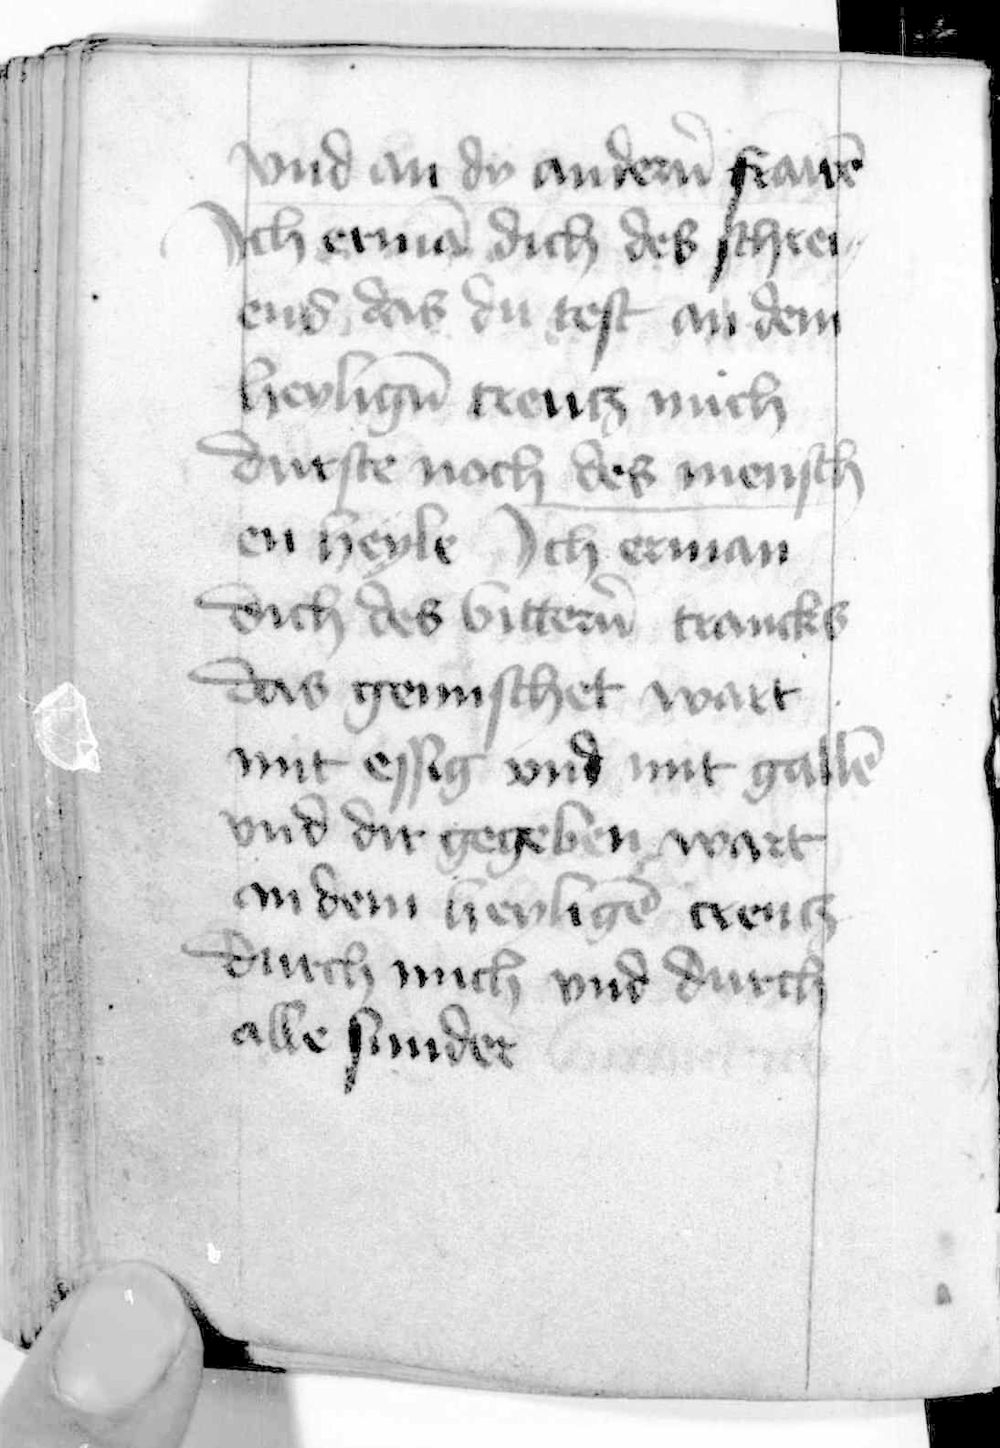 vnd an dy andern̄ frawē
Ich ermā dich des schrei⸗
ens das du test an dem
heylign̄ creutz mich
durste noch des mensch
en heyle Ich erman
dich des bittern̄ trancks
das gemischet wart
mit essig vnd mit gallē
vnd dir gegeben wart
an dem heyligē creutz
durch mich vnd durch
alle sunder